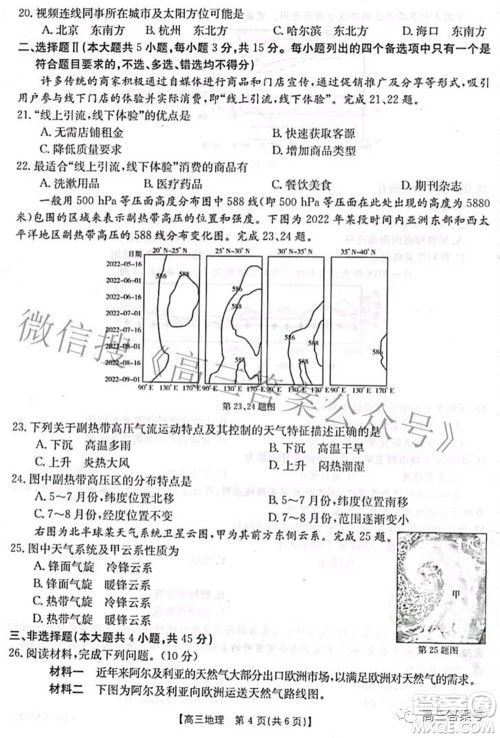 20. 视频连线同事所在城市及太阳方位可能是
A. 北京　东南方　B. 杭州　东北方　C. 哈尔滨　东南方　D. 海口　东北方
二、选择题Ⅱ(本大题共 5 小题,每小题 3 分,共 15 分。每小题列出的四个备选项中只有一个是
符合题目要求的,不选、多选、错选均不得分)
许多传统的商家积极通过自媒体进行商品和门店宣传,通过促销推广及分享等形式,吸
引用户参与“线上引流,线下体验”。完成21、22题。
21. “线上引流,线下体验”的优点是
A. 无需店铺租金　B. 快速获取客源
C. 降低质量要求　D. 增加商品类型
22. 最适合“线上引流,线下体验”消费的商品有
A. 洗漱用品　B. 医疗药品　C. 餐饮美食　D. 期刊杂志
一般用 500 hPa 等压面高度分布图中 588 线(即等压面在此处出现的高度为5880
米)包围的区域来表示副热带高压的位置和强度。下图为 2022 年某段时间内亚洲东部和西太
平洋地区副热带高压的588线分布变化图。完成23、24题。
日期　20° N-25° N　25° N-30° N　30° N-35° N　35° N-40° N
2022-05-16
2022-06-01
2022-06-16
2022-07-01
2022-07-16
2022-08-01
2022-08-16
2022-09-01
586　588　586　588　588
90° E　130° E　170° E　90° E　130° E　170° E　90° E　130° E　170° E　90° E　130° E　170° E
第 23、24 题图
23. 下列关于副热带高压气流运动特点及其控制的天气特征描述正确的是
A. 下沉　高温多雨　B. 下沉　高温干旱
C. 上升　炎热大风　D. 上升　闷热潮湿
24. 图中副热带高压区的分布特点是
A. 5～7 月份,纬度位置北移　B. 5～7 月份,纬度位置南移
C. 7～8 月份,经度位置不变　D. 7～8 月份,范围逐渐变小
右图为北半球某天气系统卫星云图,甲为其前方东侧云系。完成 25 题。
25. 图中天气系统及甲云系性质为
A. 锋面气旋　冷锋云系
B. 锋面气旋　暖锋云系
C. 热带气旋　冷锋云系
D. 热带气旋　暖锋云系
甲
第 25 题图
三、非选择题(本大题共 4 小题,共 45 分)
26. 阅读材料,完成下列问题。(10 分)
材料一　近年来阿尔及利亚的天然气大部分出口欧洲市场,以满足欧洲对天然气的需求。
材料二　下图为阿尔及利亚向欧洲运送天然气路线图。
【高三地理　第 4 页(共 6 页)】
微信搜《高三答案公众号》
高三答案号